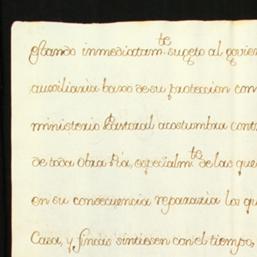 estando inmediatam.te sugeto al govier
auxiliaria baxo de su proteccion con
ministerio Pastoral acostumbra cont
de toda Obra Pia, especialm.te de las que
en su consecuencia repararia los qu
Casa, y fincas sintiesen con el tiempo,